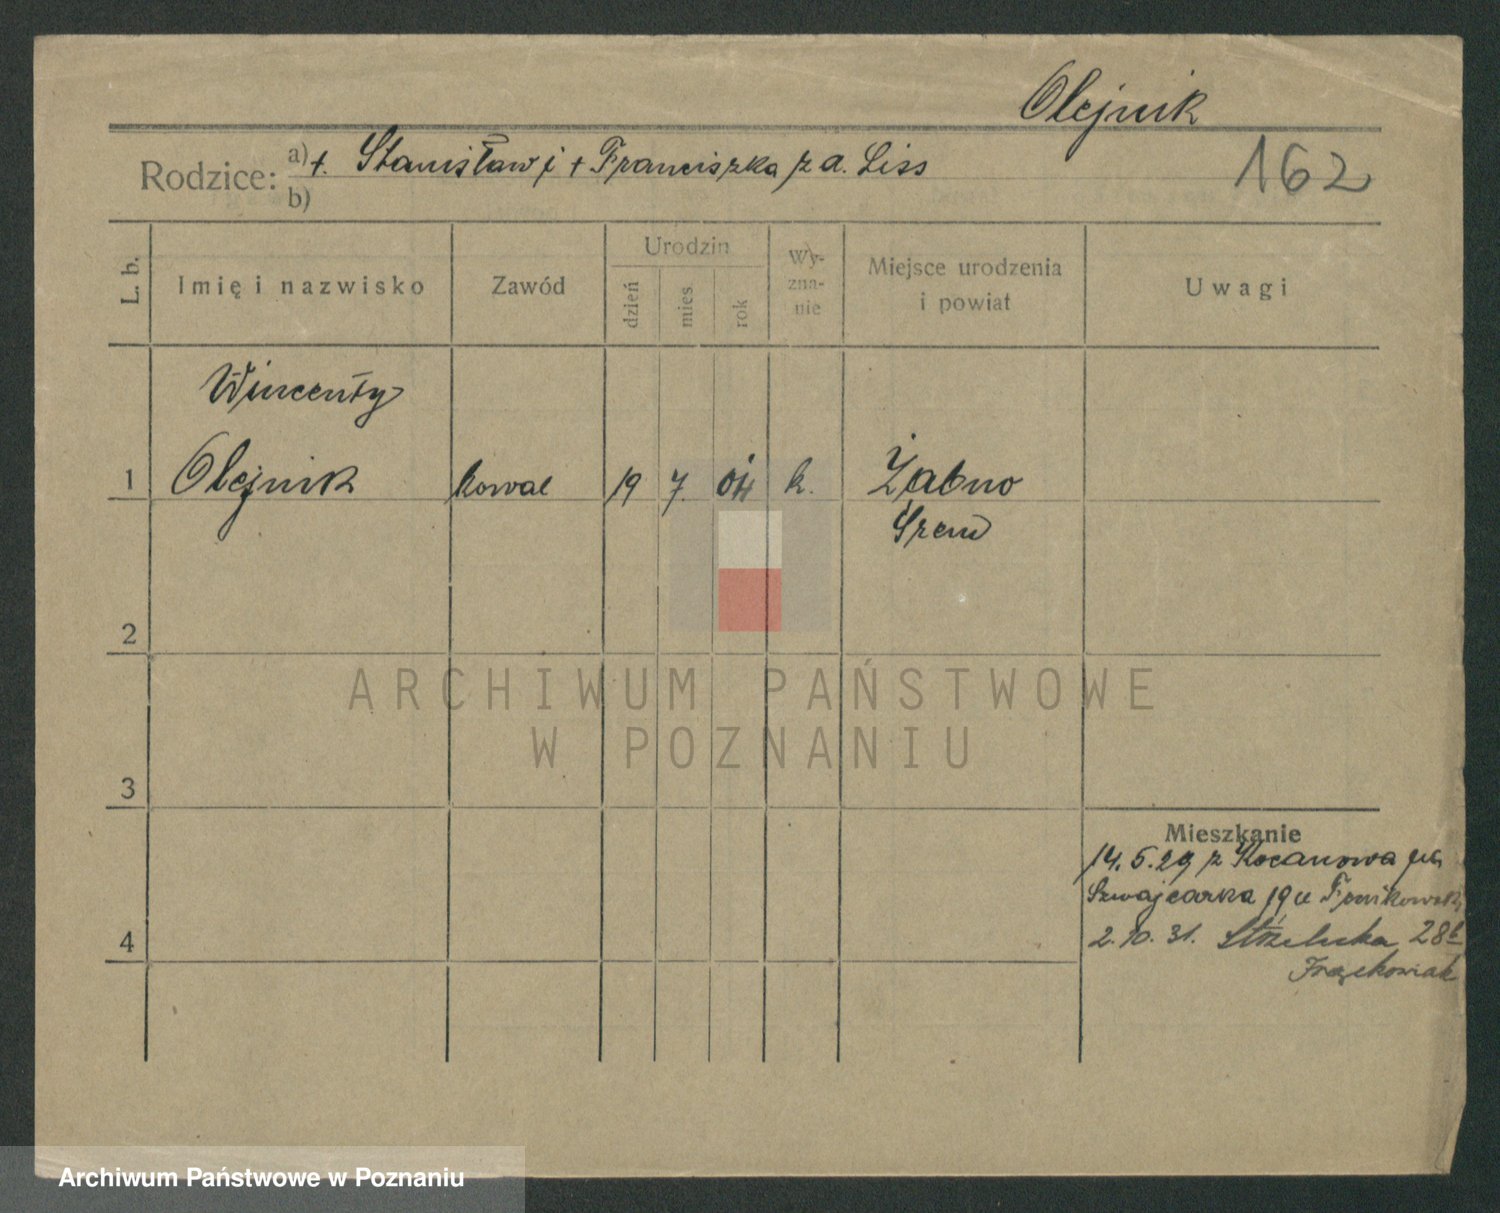 Olejnik
Rodzice: a) +. Stanisław i + Franciszka z d. Liss
b)
162
L. b.
Imię i nazwisko
Zawód
Urodzin
dzień
mies
rok
Wy-
zna-
nie
Miejsce urodzenia
i powiat
Uwagi
Wincenty
1 Olejnik kowal 19 7 04 k. Żabno
Śrem
2
3
4
Mieszkanie
14.5.29 z Kocanowa
Szwajcarka 19 u
2.10.31. Strzelecka 28
ARCHIWUM PAŃSTWOWE
W POZNANIU
Archiwum Państwowe w Poznaniu